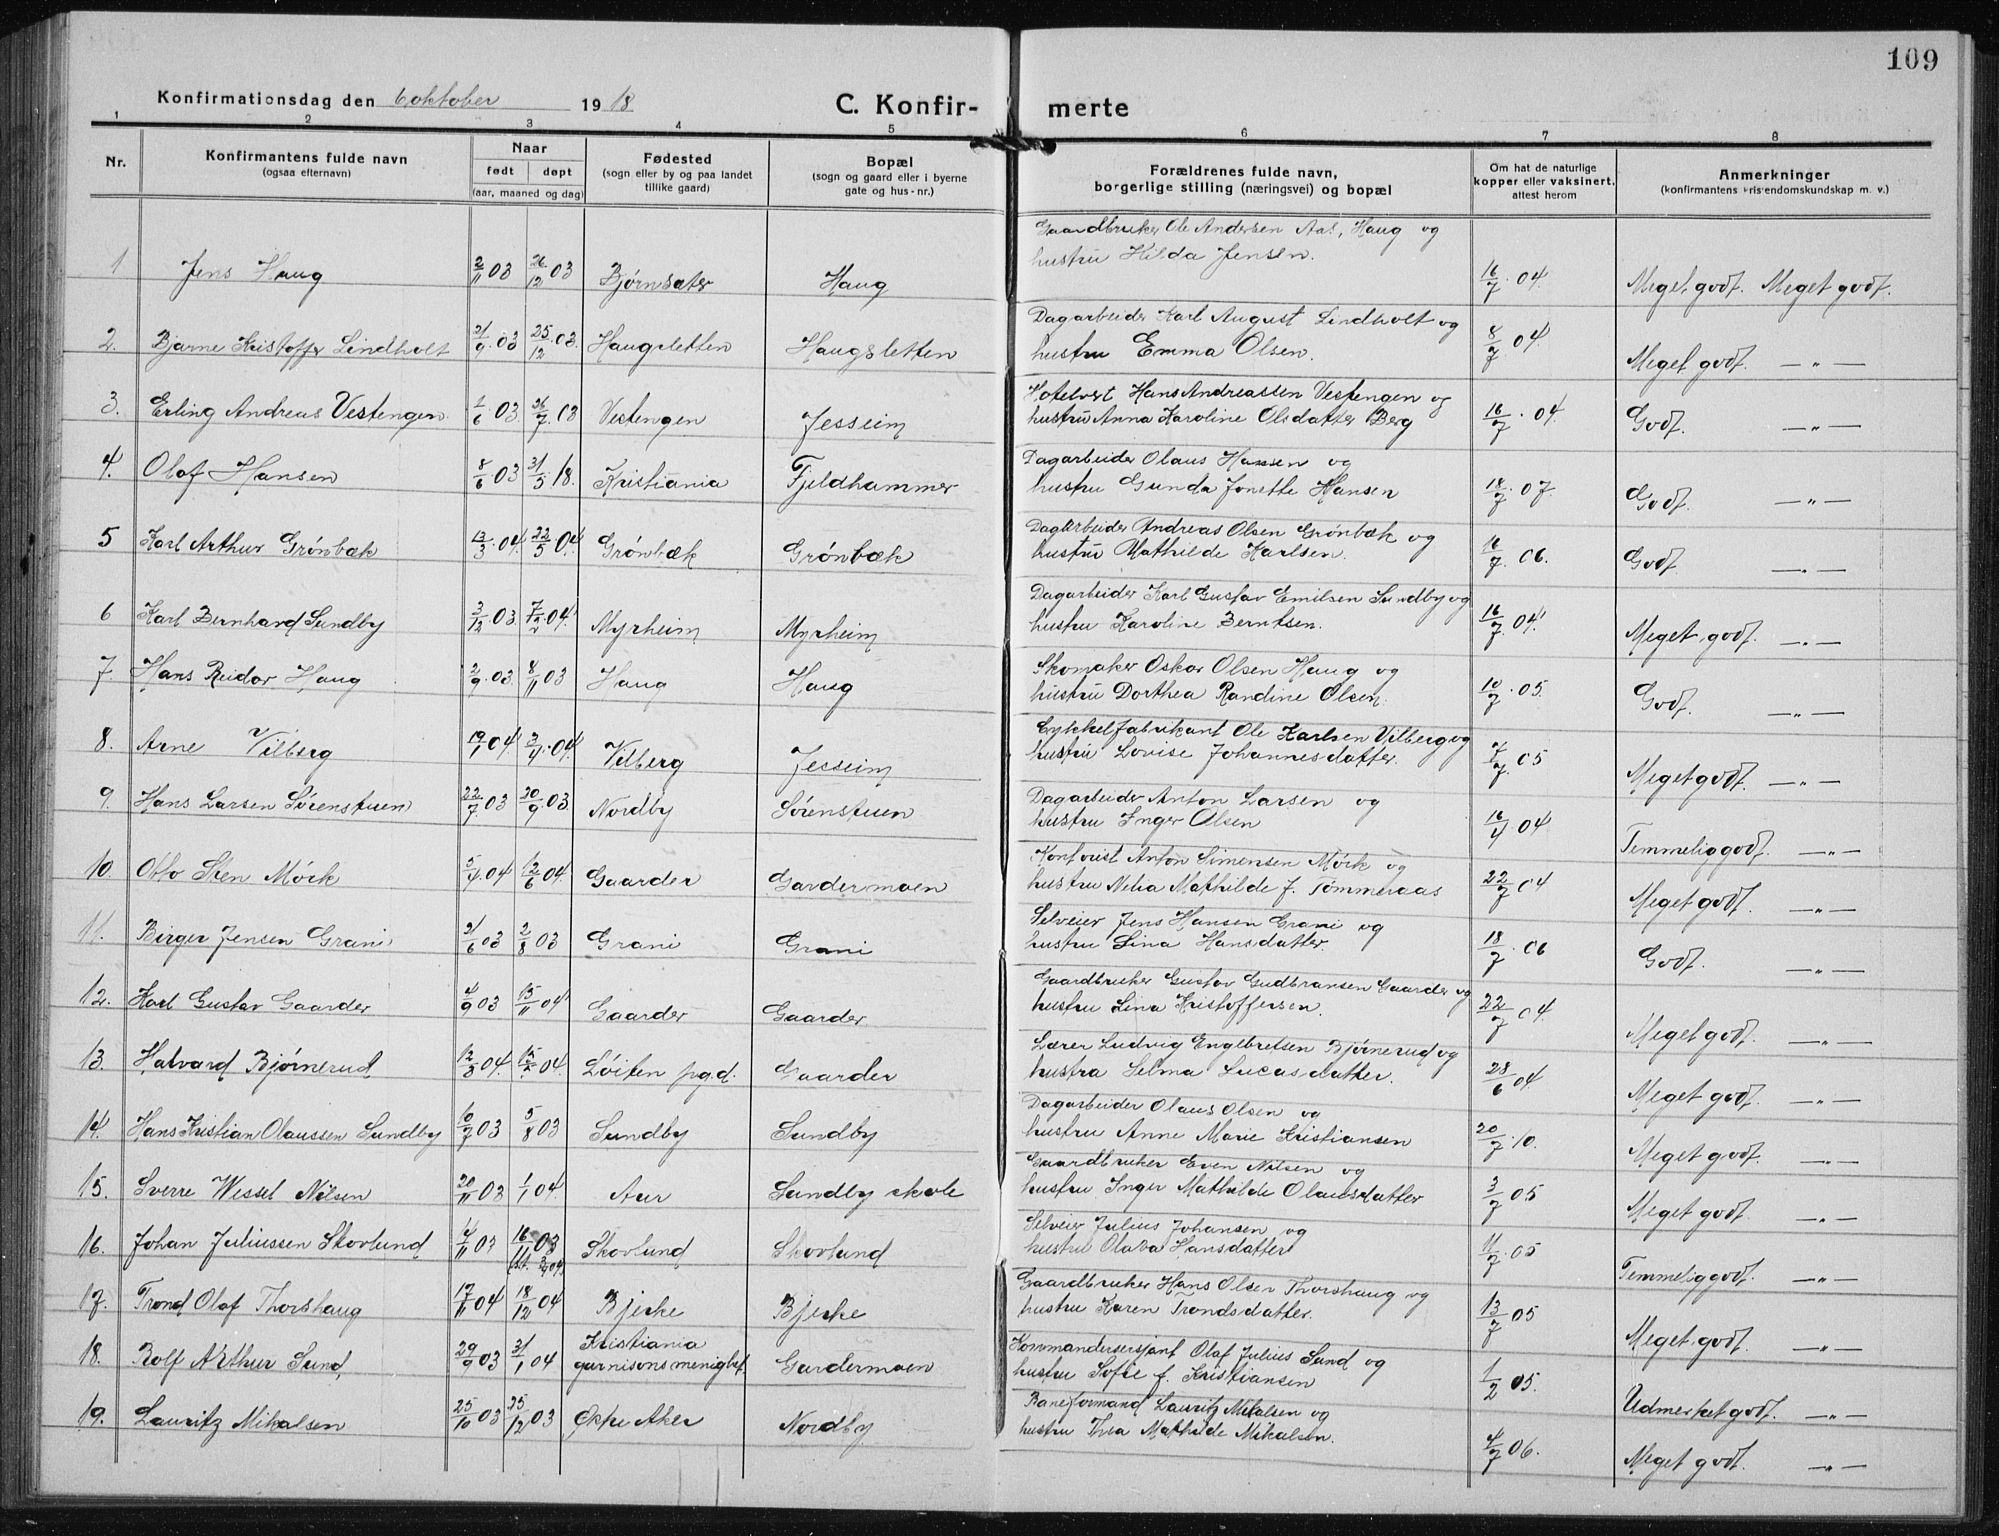 109
Konfirmationsdag den 6 oktober 1918 C. Konfirmerte
1 2 3 4 5 6 7 8
Nr. Konfirmantens fulde navn (ogsaa efternavn) Naar født døpt (aar, maaned og dag) Fødested (sogn eller by og paa landet tillike gaard) Bopæl (sogn og gaard eller i byerne gate og hus-nr.) Forældrenes fulde navn, borgerlige stilling (næringsvei) og bopæl Om hat de naturlige kopper eller vaksinert, attest herom Anmerkninger (konfirmantens kristendomskundskap m. v.)
Gaardbruker Ole Andersen Aas, Haug og
1 Jens Haug 2/11 03 26/12 03 Bjørnsater Haug hustru Hilda Jensen. 16/7 · 04. Meget godt. Meget godt.
Dagarbeider Karl August Lindholt og
2. Bjarne Kristoffer Lindholt 21/9 · 03 25/12 · 03. Haugsletten Haugsletten hustru Emma Olsen. 8/7 04. Meget godt. — „ —
Hotelvert Hans Andreassen Vestengen og
3. Erling Andreas Vestengen 1/6 03 26/7 · 03 Vestengen Jesseim hustru Anna Karoline Olsdatter Berg 16/7 · 04. Godt. — „ —
Dagarbeider Olaus Hansen og
4. Olaf Hansen 8/6 03 31/5 · 18. Kristiania Fjeldhammer hustru Gunda Jonette Hansen 18/7 · 07. Godt. — „ —
Dagarbeider Andreas Olsen Grønbæk og
5 Karl Arthur Grønbæk 13/3 · 04. 22/5 04. Grønbæk Grønbæk hustru Mathilde Karlsen. 16/7 · 06. Godt. — „ —
Dagarbeider Karl Gustav Emilsen Sundby og
6 Karl Bernhard Sundby 3/12 · 03. 7/2 · 04. Myrheim Myrheim hustru Karoline Berntsen. 16/7 · 04. Meget godt. — „ —
Skomaker Oskar Olsen Haug og
7. Hans Reidar Haug 2/9 · 03. 8/11 03 Haug Haug hustru Dorthea Randine Olsen. 10/7 · 05. Godt. — „ —
Cykkelfabrikant Ole Karlsen Vilberg og
8. Arne Vilberg 19/1 04 3/4 · 04. Vilberg Jesseim hustru Lovise Johannesdatter. 7/7 · 05 Meget godt. — „ —
Dagarbeider Anton Larsen og
9. Hans Larsen Sørenstuen 22/7 · 03 20/9 · 03 Nordby Sørenstuen hustru Inger Olsen 16/4 · 04 Temmelig godt. — „ —
Kontorist Anton Simensen Mörk og
10. Otto Sten Mörk 5/4 · 04 12/6 04. Gaarder Gardermoen hustru Nelia Mathilde f. Tømmeraas 22/7 04 Meget godt. — „ —
Selveier Jens Hansen Grani og
11. Birger Jensen Grani 21/6 03 2/8 03 Grani Grani hustru Lina Hansdatter. 18/7 · 06 Godt. — „ —
Gaardbruker Gustav Gudbransen Gaarder og
12. Karl Gustav Gaarder 4/9 03 15/11 04 Gaarder Gaarder hustru Lina Kristoffersen. 22/7 04. Meget godt. — „ —
Lærer Ludvig Engebretsen Bjørnerud og
13. Halvard Bjørnerud 12/3 04. 04. Løiten pgd. Gaarder hustru Selma Lucasdatter. 28/6 04 Meget godt. — „ —
Dagarbeider Olaus Olsen og
14. Hans Kristian Olaussen Sundby 10/7 03 5/8 03 Sundby Sundby hustru Anne Marie Kristiansen 20/7 · 10. Meget godt. — „ —
Gaardbruker Even Nilsen og
15. Sverre Wessel Nilsen 20/11 03 1/1 04 Aur Sundby skole hustru Inger Mathilde Olausdatter 3/7 05 Meget godt. — „ —
Selveier Julius Johansen og
16. Johan Juliussen Skovlund 4/11 03 16/11 03 Skovlund Skovlund hustru Olava Hansdatter 11/7 · 05 Temmelig godt. — „ —
Gaardbruker Hans Olsen Thorshaug og
17. Trond Olaf Thorshaug 17/11 04 18/12 04 Bjerke Bjerke hustru Karen Trondsdatter. 13/7 05 Meget godt. — „ —
Kommandersersjant Olaf Julius Sund og
18. Rolf Arthur Sund, 29/9 03 31/1 04 Kristiania garnisonsmenighet. Gardermoen hustru Sofie f. Kristiansen 1/2 05. Udmerket godt. — „ —
Baneformand Lauritz Mikalsen og
19. Lauritz Mikalsen 25/10 03 25/12 03 Østre Aker Nordby hustru Thea Mathilde Mikalsen. 4/7 06. Meget godt. — „ —